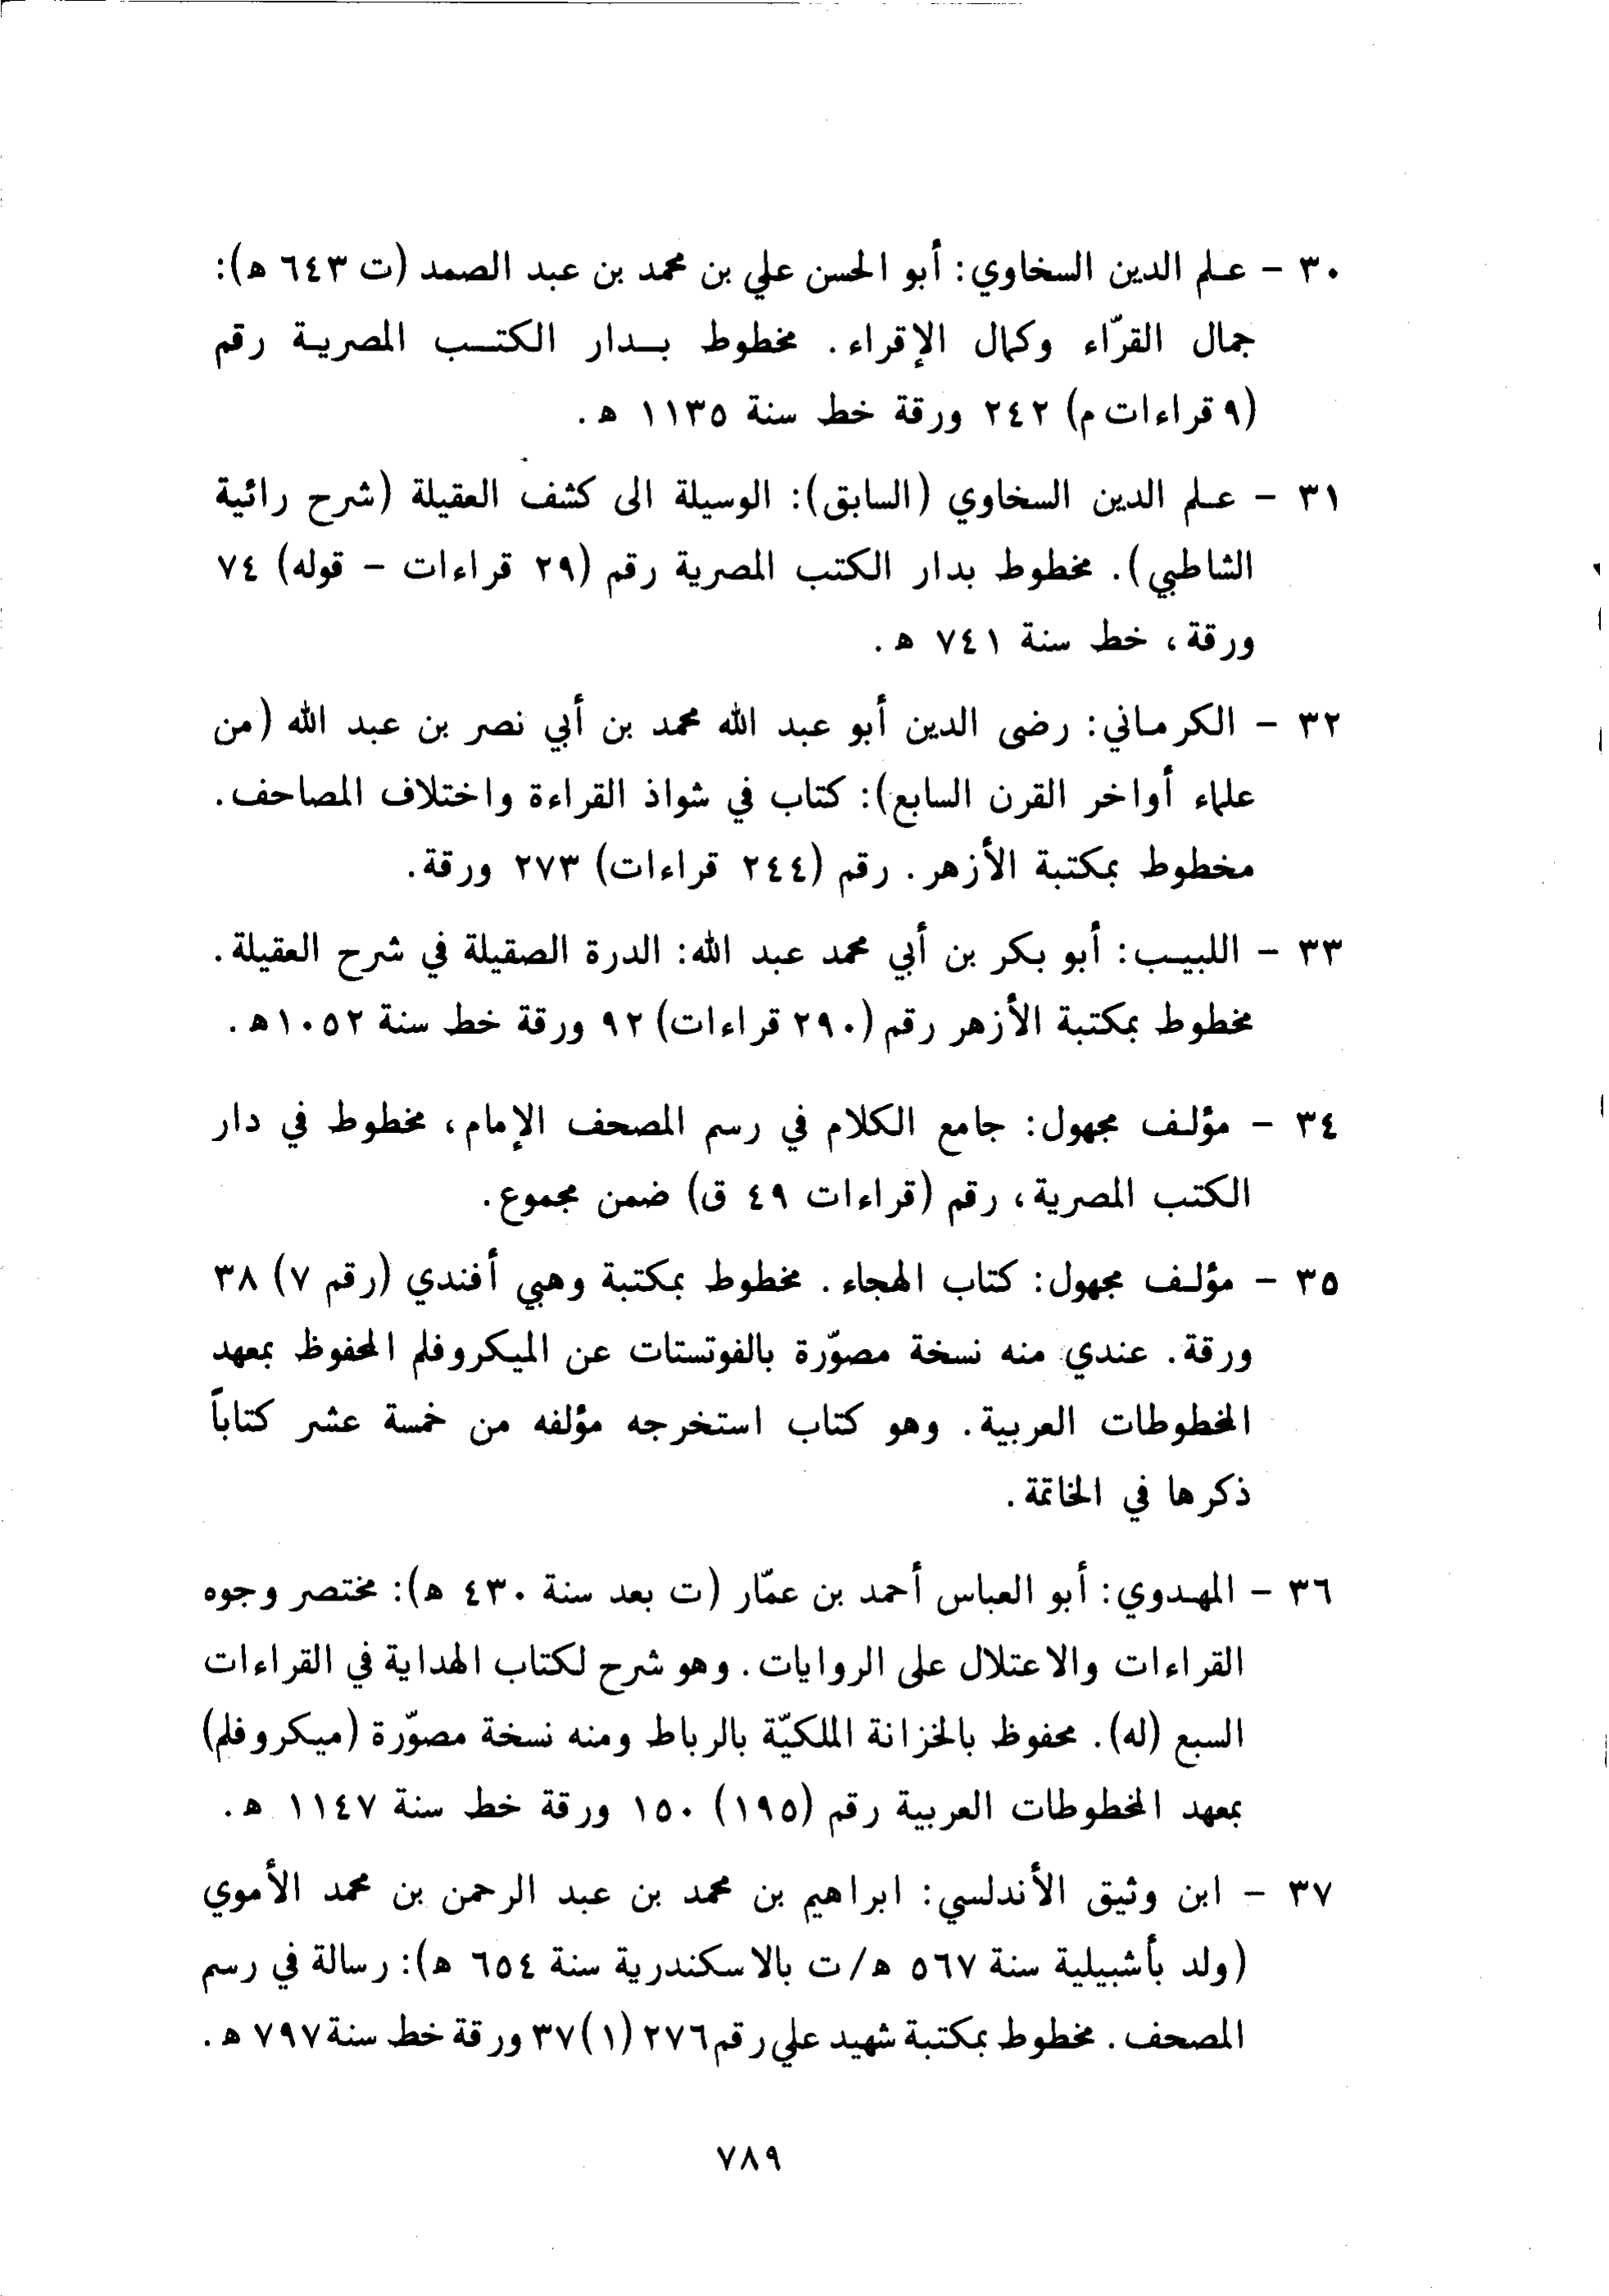 ٣٠ - علم الدين السخاوي: أبو الحسن علي بن محمد بن عبد الصمد (ت ٦٤٣ هـ):
جمال القرّاء وكمال الإقراء. مخطوط بدار الكتب المصرية رقم
(٩ قراءات م) ٢٤٢ ورقة خط سنة ١١٣٥ هـ.
٣١ - علم الدين السخاوي (السابق): الوسيلة الى كشف العقيلة (شرح رائية
الشاطبي). مخطوط بدار الكتب المصرية رقم (٢٩ قراءات - قوله) ٧٤
ورقة، خط سنة ٧٤١ هـ.
٣٢ - الكرماني: رضى الدين أبو عبد الله محمد بن أبي نصر بن عبد الله (من
علماء أواخر القرن السابع): كتاب في شواذ القراءة واختلاف المصاحف.
مخطوط بمكتبة الأزهر. رقم (٢٤٤ قراءات) ٢٧٣ ورقة.
٣٣ - اللبيب: أبو بكر بن أبي محمد عبد الله: الدرة الصقيلة في شرح العقيلة.
مخطوط بمكتبة الأزهر رقم (٢٩٠ قراءات) ٩٢ ورقة خط سنة ١٠٥٢هـ.
٣٤ - مؤلف مجهول: جامع الكلام في رسم المصحف الإمام، مخطوط في دار
الكتب المصرية، رقم (قراءات ٤٩ ق) ضمن مجموع.
٣٥ - مؤلف مجهول: كتاب الهجاء. مخطوط بمكتبة وهبي أفندي (رقم ٧) ٣٨
ورقة. عندي منه نسخة مصوّرة بالفوتستات عن الميكروفلم المحفوظ بمعهد
المخطوطات العربية. وهو كتاب استخرجه مؤلفه من خمسة عشر كتاباً
ذكرها في الخاتمة.
٣٦ - المهدوي: أبو العباس أحمد بن عمّار (ت بعد سنة ٤٣٠ هـ): مختصر وجوه
القراءات والاعتلال على الروايات. وهو شرح لكتاب الهداية في القراءات
السبع (له). محفوظ بالخزانة الملكيّة بالرباط ومنه نسخة مصوّرة (ميكروفلم)
بمعهد المخطوطات العربية رقم (١٩٥) ١٥٠ ورقة خط سنة ١١٤٧ هـ.
٣٧ - ابن وثيق الأندلسي: ابراهيم بن محمد بن عبد الرحمن بن محمد الأموي
(ولد بأشبيلية سنة ٥٦٧ هـ/ت بالاسكندرية سنة ٦٥٤ هـ): رسالة في رسم
المصحف. مخطوط بمكتبة شهيد علي رقم ٢٧٦ (١) ٣٧ ورقة خط سنة ٧٩٧ هـ.
٧٨٩